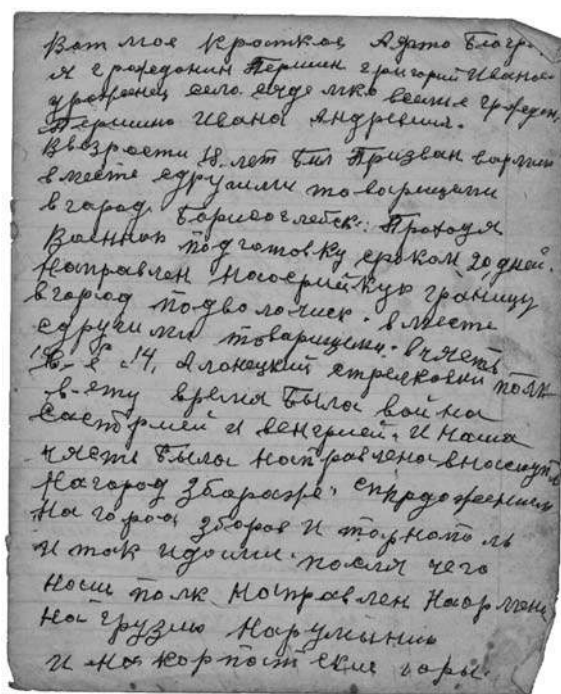 Вот мое кроткое Афто Биогра
я грожедонин Першин григорий Ивано
уроженец село
Першино Ивана Андревича.
Ввозрости 18. лет был Призван вармию
вместе сдругими товарищами
вгород Борисоглебск. Проходя
Военною подготовку сроком 20 дней.
Направлен
вгород подволочиск. вместе
сдругими товарищами. вчясть
14, Алонецкий стрелковый полк
в-ету время была война
и венгрией. и наша
чясть была направлена
На город збараже.
На город зборов и тарнополь
и ток идоли. посля чего
нош полк Направлен
на грузию нарумынию
и на корпотские горы.